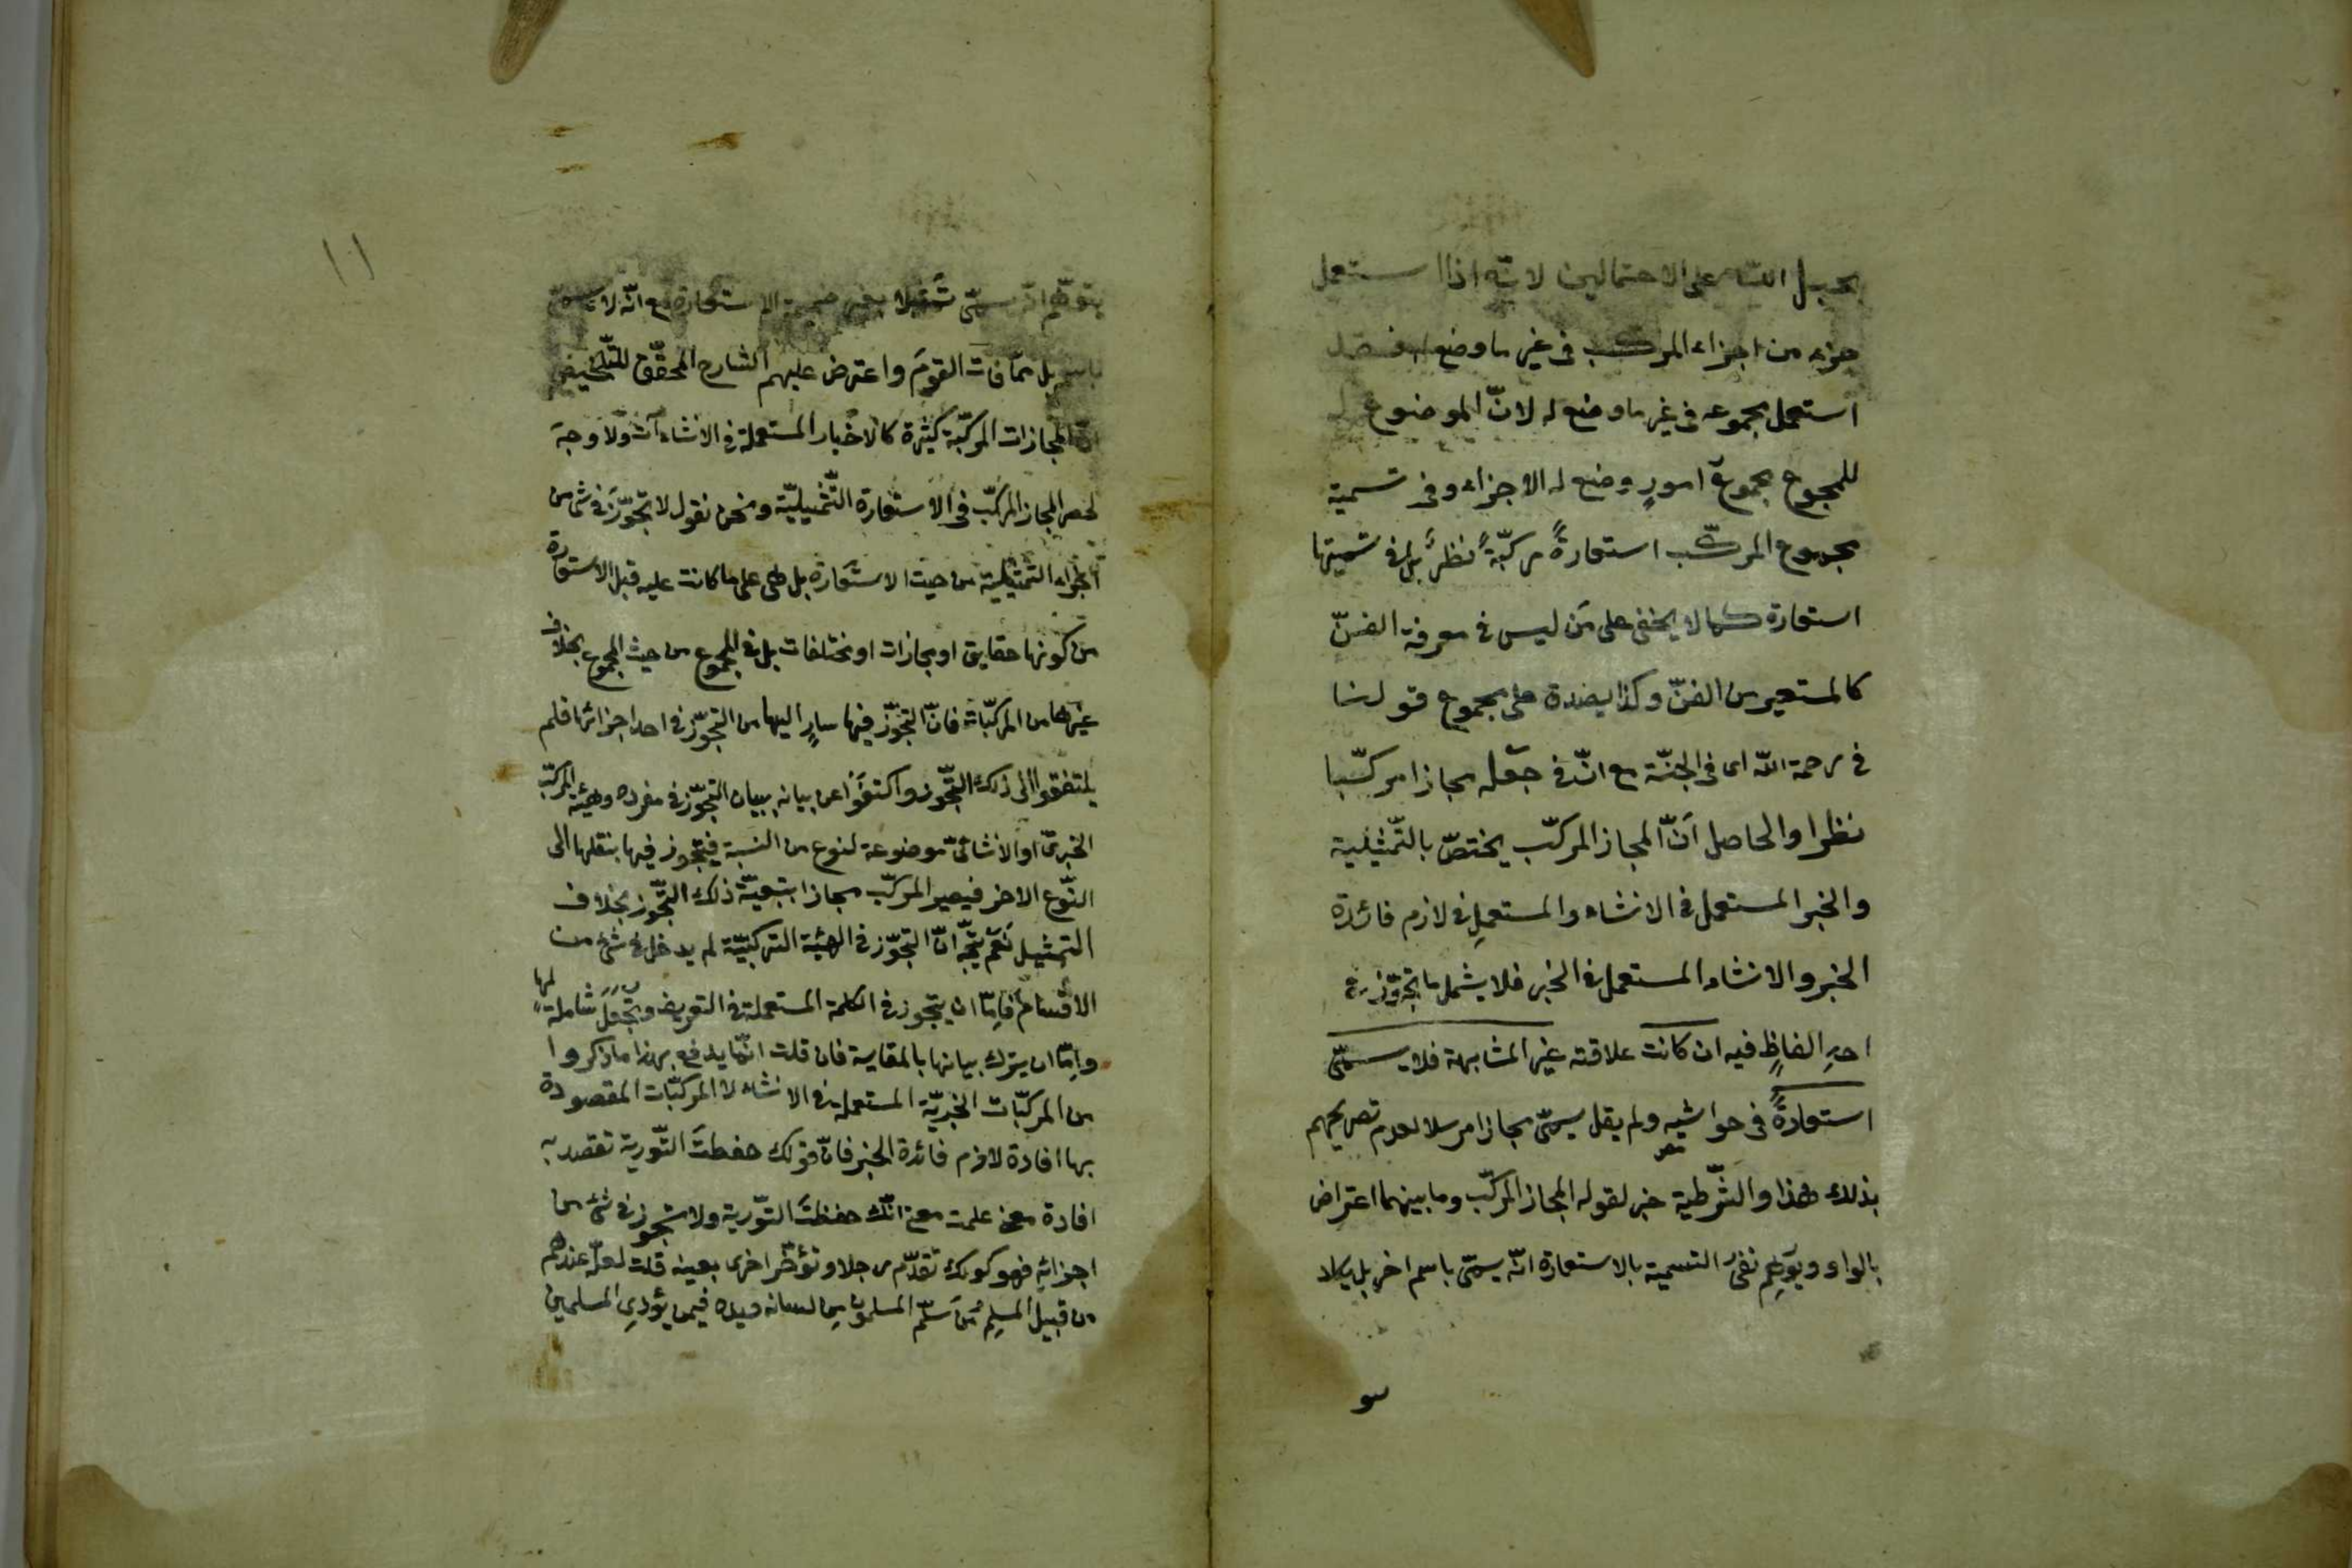 بحبل الله على الاحتمالين لانّه اذا استعمل
جزء من اجزاء المركب فى غير ما وضع له فقد
استعمل مجموعه فى غير ما وضع له لانّ الموضوع له
للمجموع مجموع امورٍ وضع له الاجزاء وفى تسمية
مجموع المركّب استعارةً مركّبةً نظرٌ بل فى تسميتها
استعارة كما لا يخفى على مَن ليس فى معرفة الفنّ
كالمستعير من الفنّ وكذا يصدق على مجموع قولنا
فى رحمة اللّه اى فى الجنّة مع انّ فى جعله مجازا مركّبا
نظرا والحاصل اَنّ المجاز المركّب يختصّ بالتّمثيلية
والخبر المستعمل فى الانشاء والمستعملِ فى لازم فائدة
الخبر والانشاء المستعمل فى الخبر فلا يشمل ما تجوّز فى
احدِ الفاظٍ فيه ان كانت علاقته غير المشابهة فلا يسمّى
استعارةً فى حواشيه ولم يقل يسمّى مجازا مرسلا لعدم تصريحهم
بذلك هذا والشّرطية خبر لقوله المجاز المركّب وما بينهما اعتراض
بالواو ويوَهِم نفىُ التسمية بالاستعارة انّه يسمّى باسم اخر بل يكاد
١٠١
يتوهّم انّه يسمّى تمثيلا الاستعارة مع انّه لا يسمّى
باسم بل ممّا فات القومَ واعترض عليهم الشارح المحقّق للتّلخيص
انّ المجازات المركّبة كثيرة كالاخبار المستعملة فى الانشاءآت ولا وجه
لحصر المجاز المركّب فى الاستعارة التّمثيليّة ونحن نقول لا تجوّزَ فى شئ من
اجزاء التّمثيلية من حيث الاستعارة بل هى على ما كانت عليه قبل الاستعارة
من كونها حقايق او مجازات او مختلفات بل فى المجموع من حيث المجموع بخلاف
غيرها من المركّبات فانّ التجوّز فيها سارٍ اليها من التجوّز فى احد اجزائها فلم
يلتفتوا الى ذلك التّجوز واكتفوا عن بيانه ببيان التجوّز فى مفرده وهيئة المركّب
الخبرىّ او الانشائىّ موضوعة لنوع من النسبة فيتجوز فيها بنقلها الى
النّوع الاخر فيصير المركّب مجازا بتبعيّة ذلك التّجوز بخلاف
التمثيل نعَم يتّجه انّ التجوّز فى الهيئة التركيبيّة لم يدخل فى شئ من
الاقسام فامّا ان يتجوز فى الكلمة المستعملة فى التعريف وتجعَلَ شاملة لها
وامّا ان يترك بيانها بالمقايسة فان قلت انّما يدفع بهذا ما ذكروا
من المركّبات الخبريّة المستعملة فى الانشاء لا المركّبات المقصودة
بها افادة لازم فائدة الخبر فانّ قولك حفظتَ التّورية تقصد به
افادة معنى علمت معنى انّك حفظتَ التّورية ولا تجوز فى شئ من
اجزائه فهو كقولك تقدّم رجلا وتؤخّر اخرى بعينه قلت لعلّه عندهم
من قبيل المسلِمُ مَن سَلِمَ المسلمونَ من لسانه ويده فيمن يؤذى المسلمين